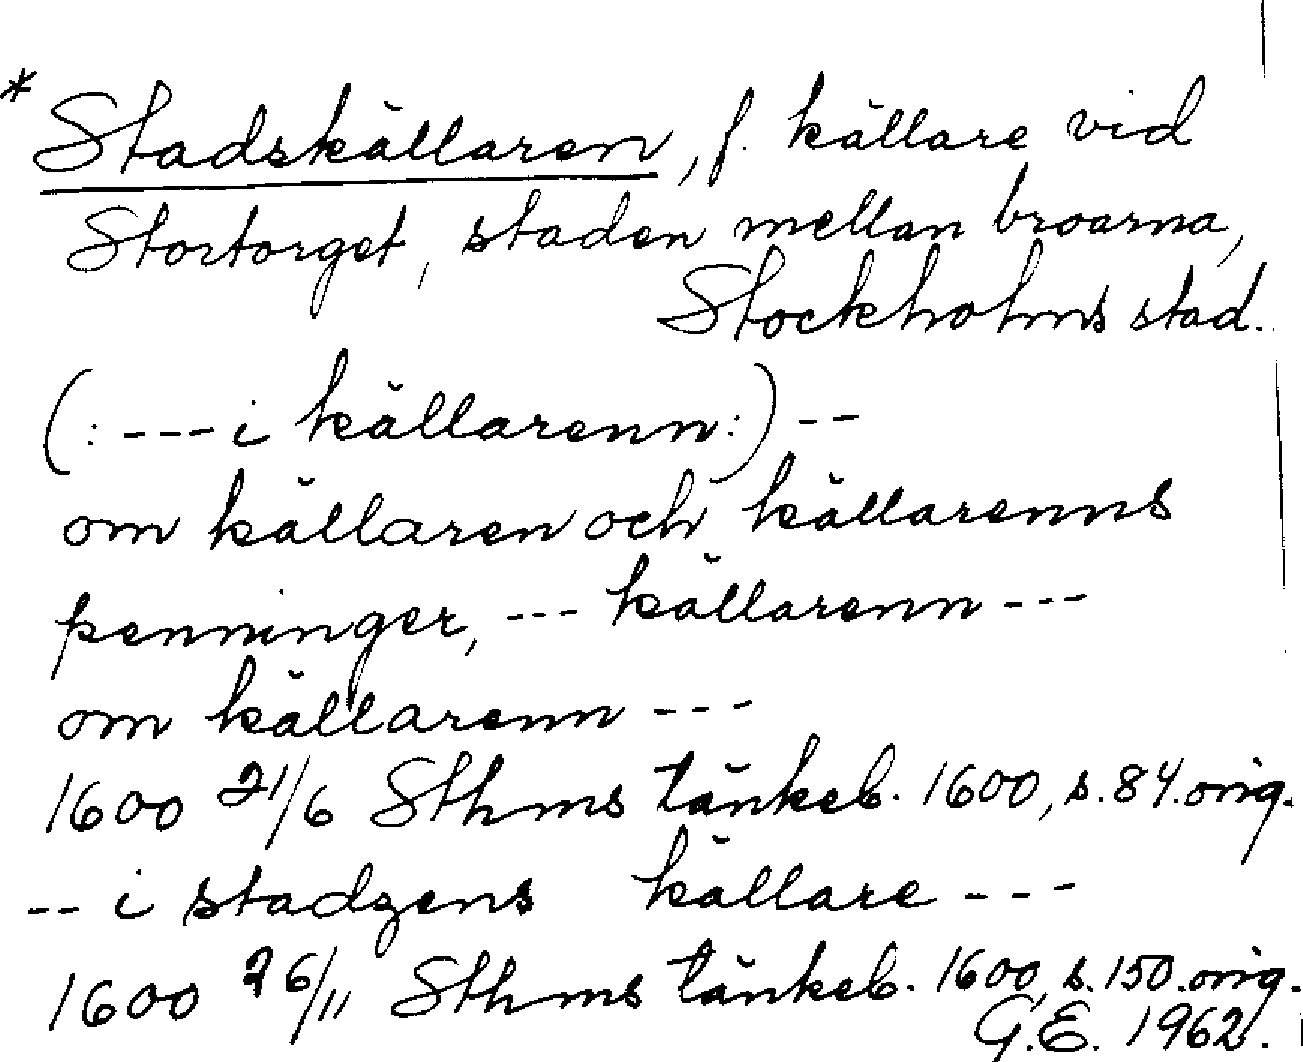 * Stadskällaren, f. källare vid
Stortorget, staden mellan broarna,
Stockholms stad.
(: --- i källarenn:) --
om källaren och källarenns
penninger, --- källarenn ---
om källarenn ---
1600 21/6 Sthms tänkeb. 1600, s. 84. orig.
-- i stadzens källare ---
1600 26/11 Sthms tänkeb. 1600, s. 150. orig.
G.E. 1962.